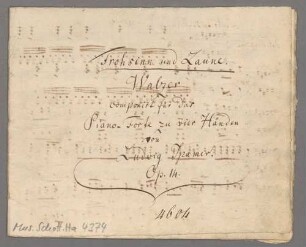 Frohsinn und Laune.
Walzer
componirt für das
Piano-Forte zu vier Händen
von
Ludwig
Op. 14.
4604
Mus. Schott. Ha 4279